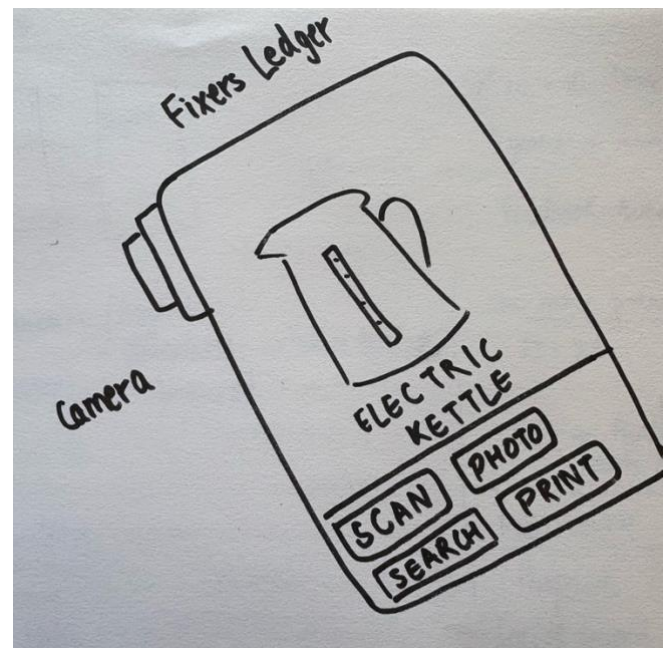 Fixers Ledger
Camera
ELECTRIC
KETTLE
SCAN
PHOTO
SEARCH
PRINT